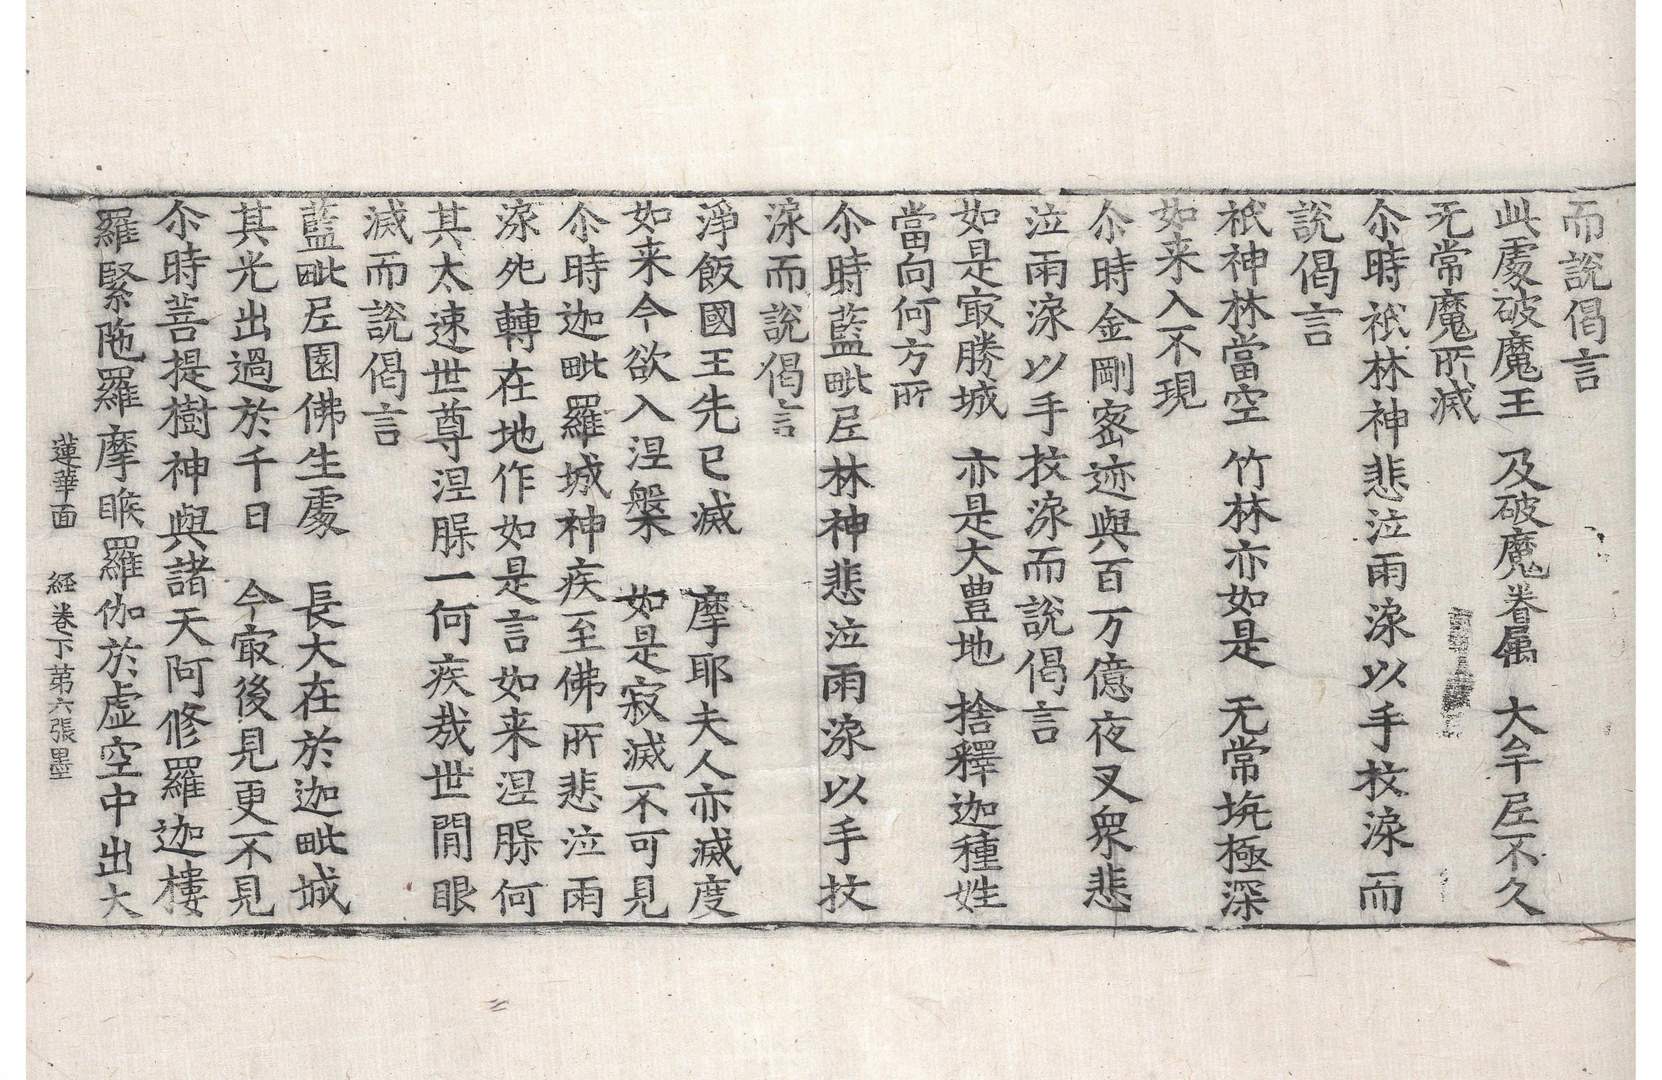 而說偈言
此處破魔王　及破魔眷属　大牟尼不久
无常魔所滅
尒時祇林神悲泣雨淚以手抆淚而
說偈言
祇神林當空　竹林亦如是　无常坑極深
如来入不現
尒時金剛密迹與百万億夜叉衆悲
泣雨淚以手抆淚而說偈言
如是㝡勝城　亦是大豊地　捨釋迦種姓
當向何方所
尒時藍毗尼林神悲泣雨淚以手抆
淚而說偈言
淨飯國王先已滅　摩耶夫人亦滅度
如来今欲入涅槃　如是寂滅不可見
尒時迦毗羅城神疾至佛所悲泣雨
淚宛轉在地作如是言如来涅槃何
其太速世尊涅槃一何疾㢤世閒眼
滅而說偈言
藍毗尼園佛生處　長大在於迦毗城
其光出過於千日　今㝡後見更不見
尒時菩提樹神與諸天阿修羅迦樓
羅緊陁羅摩睺羅伽於虚空中出大
蓮華面　経卷下第六張墨